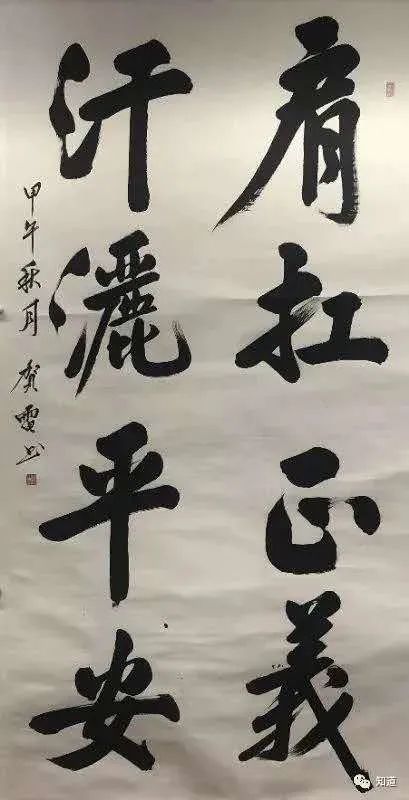 肩扛正義
汗灑平安
甲午秋月 賀雲书
知道